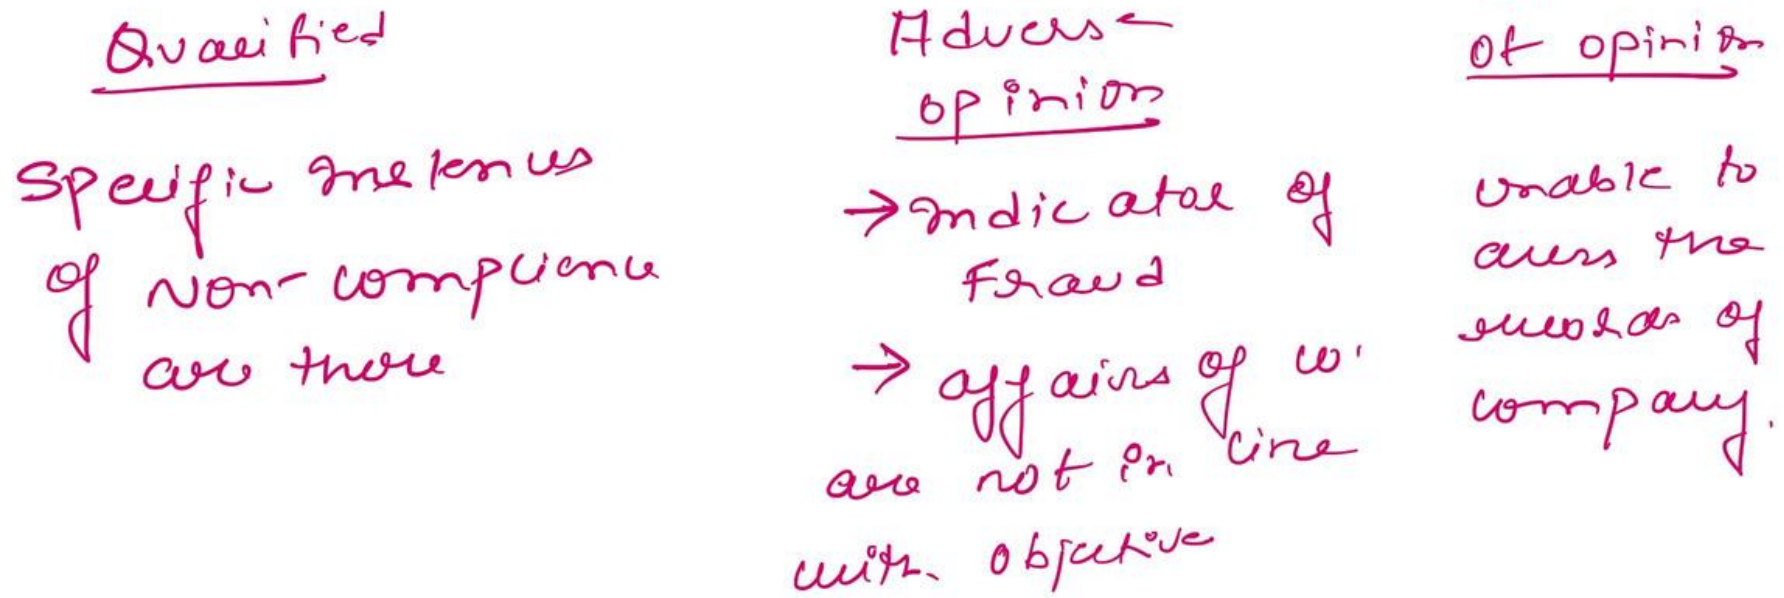 Qualified
Specific instances
of Non-compliance
are there
Adverse
opinion
→ Indicator of
Fraud
→ affairs of co.
are not in line
with objective
of opinion
unable to
access the
records of
company.